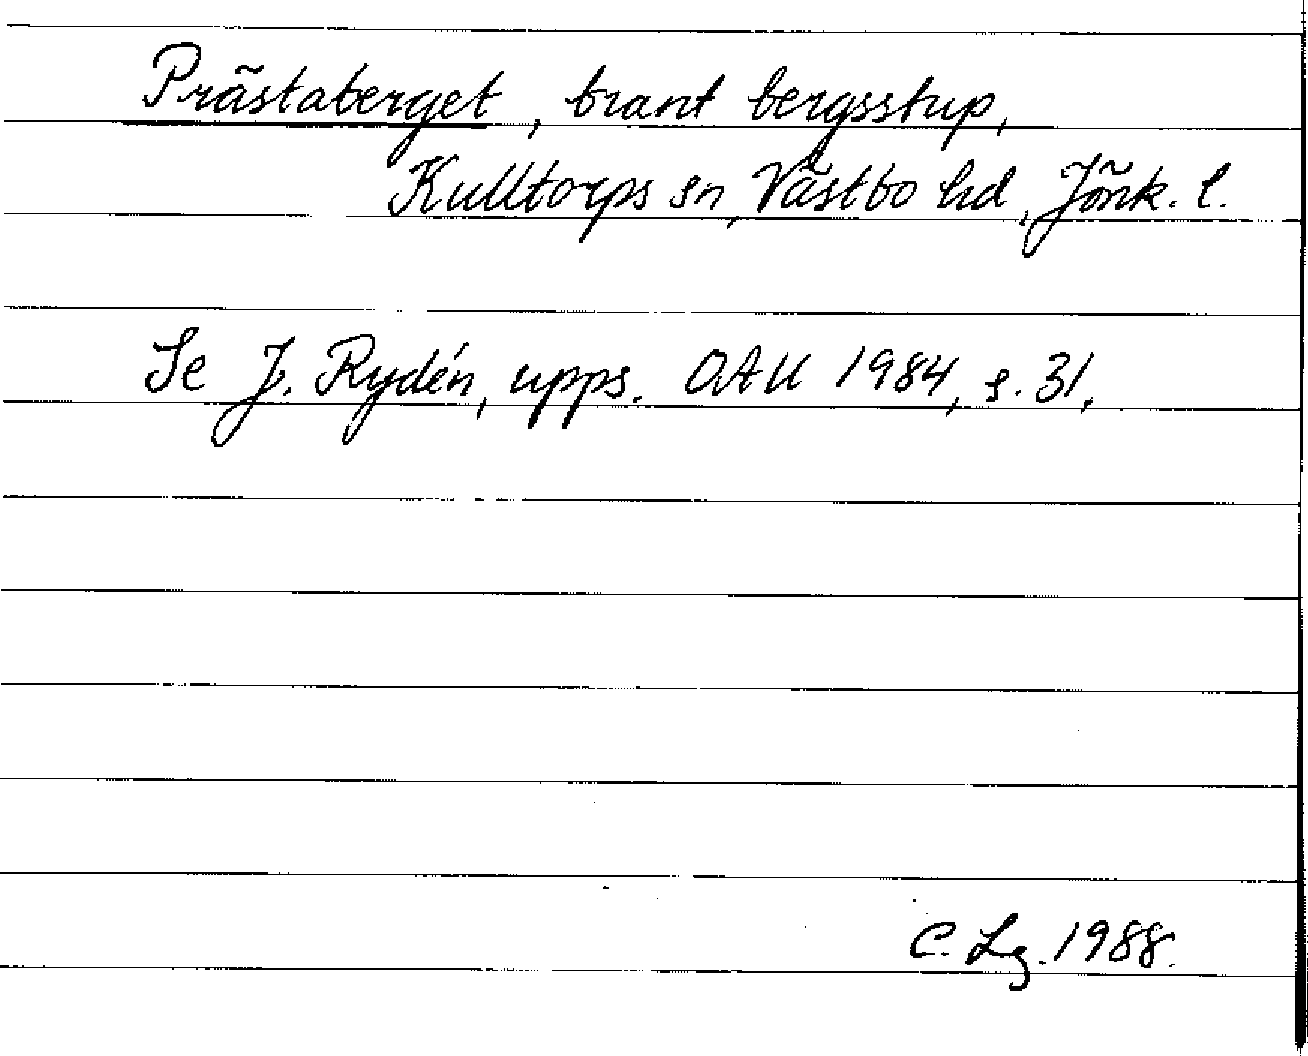 Prästaberget, brant bergsstup,
Kulltorps sn, Västbo hd, Jönk. l.
Se J. Rydén, upps. OAU 1984, s. 31.
C. Lg. 1988.